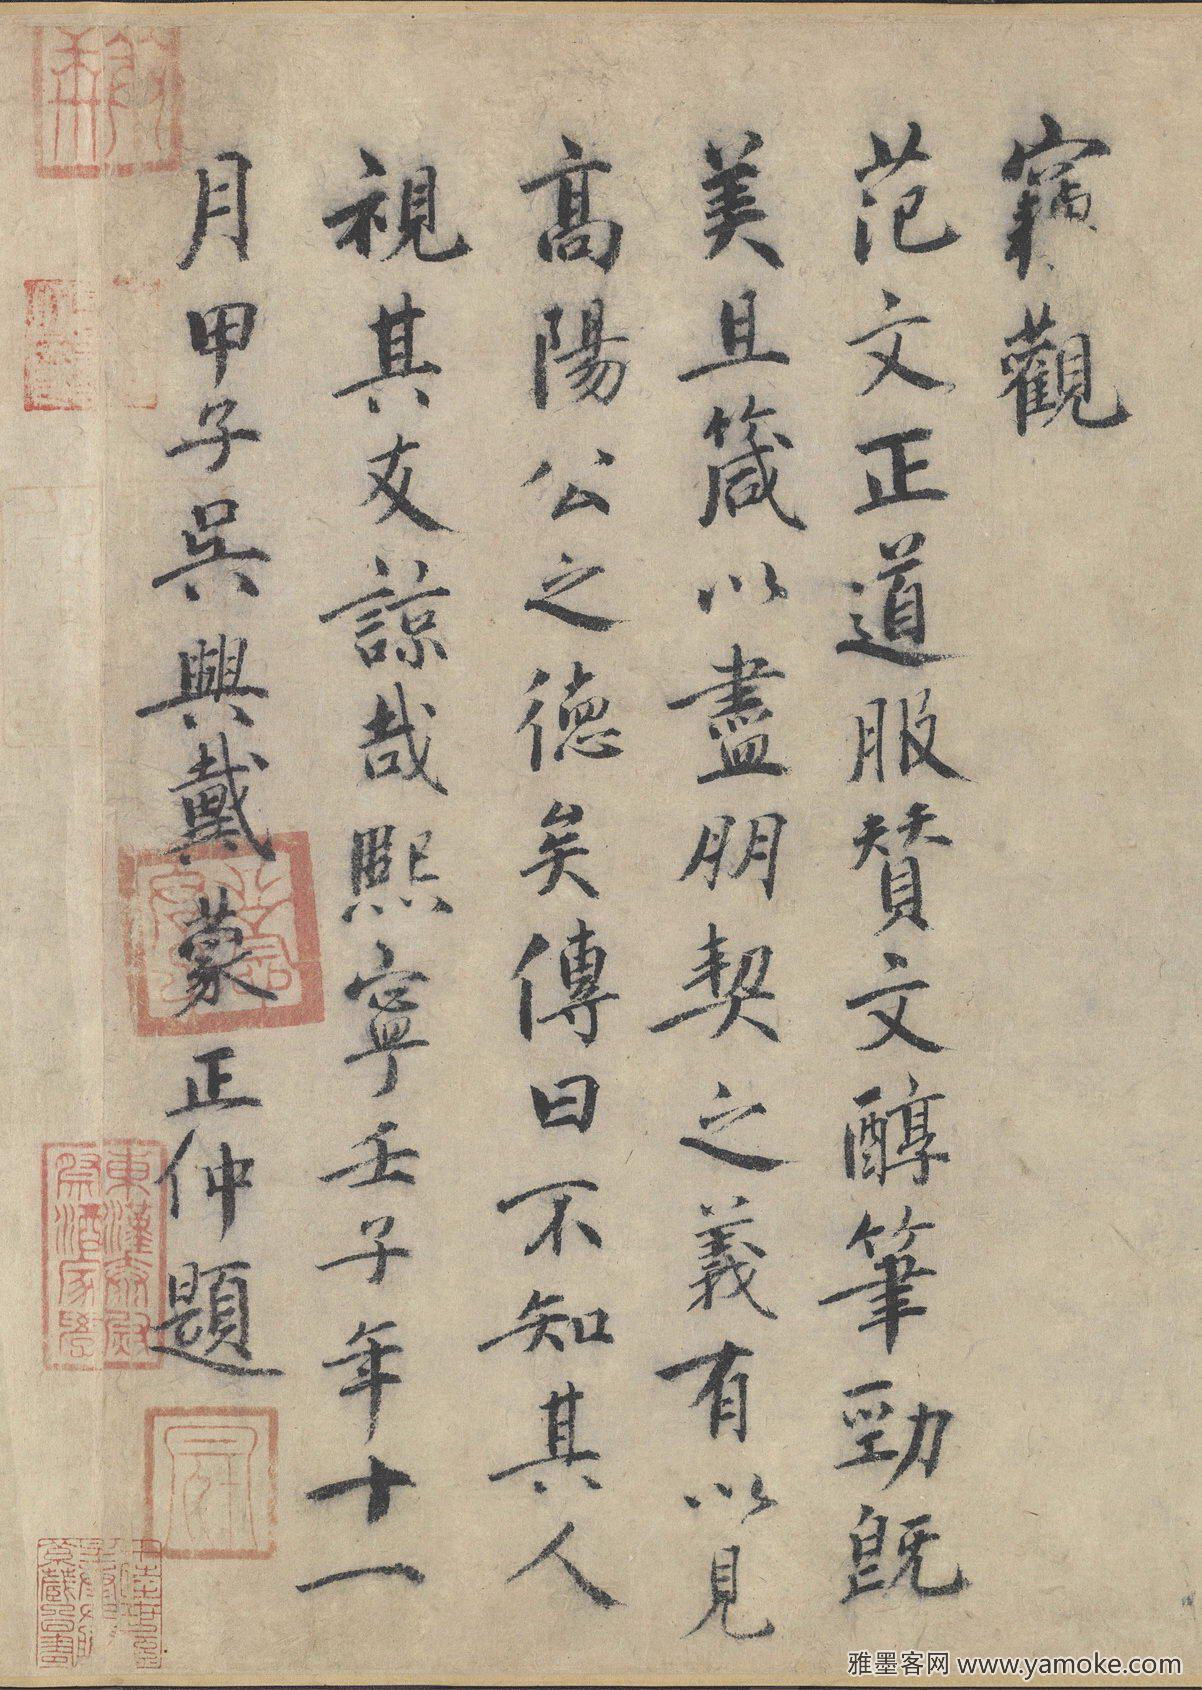 竊觀
范文正道服賛文醇筆勁既
美且箴以盡朋契之義有以見
高陽公之德矣傳曰不知其人
視其友諒哉熙寧壬子年十一
月甲子吳興戴蒙正仲題
東漢太尉
祭酒家學
雅墨客网 www.yamoke.com